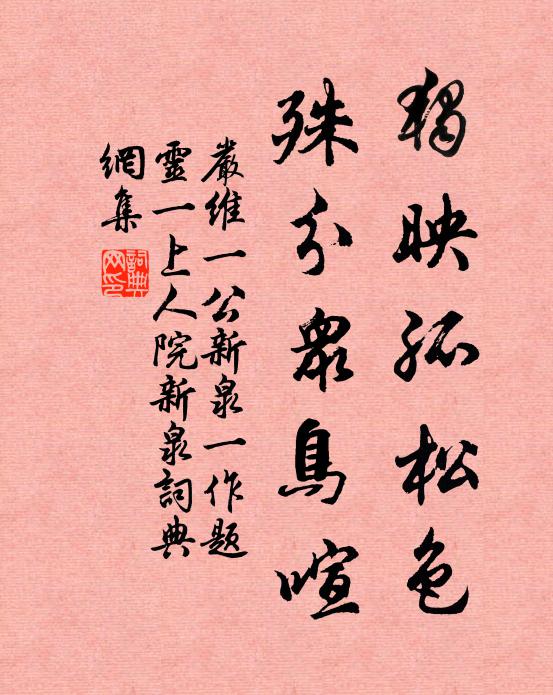 獨映孤松色
殊分衆鳥喧
嚴維一公新泉一作題
靈一上人院新泉詞典
網集
詞典網印